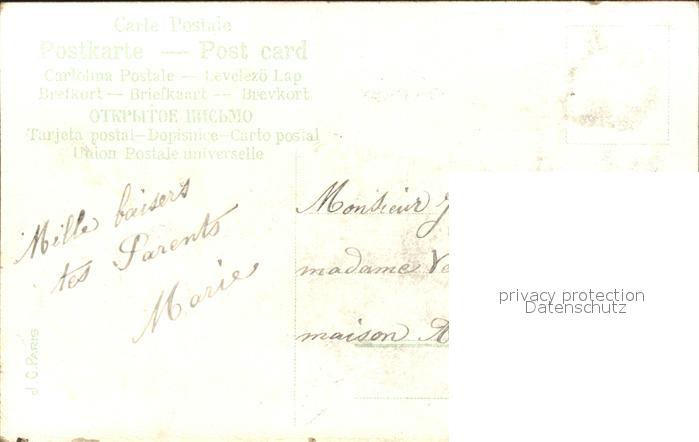 Carte Postale
Postkarte — Post card
Cartolina Postale — Levelező Lap
Brefkort — Briefkaart — Brevkort
ОТКРЫТОЕ ПИСЬМО
Tarjeta postal–Dopisnice–Carto postal
Union Postale universelle
Mille baisers
tes Parents
Marie
Monsieur J
madame Ve
maison
privacy protection
Datenschutz
J. C. PARIS